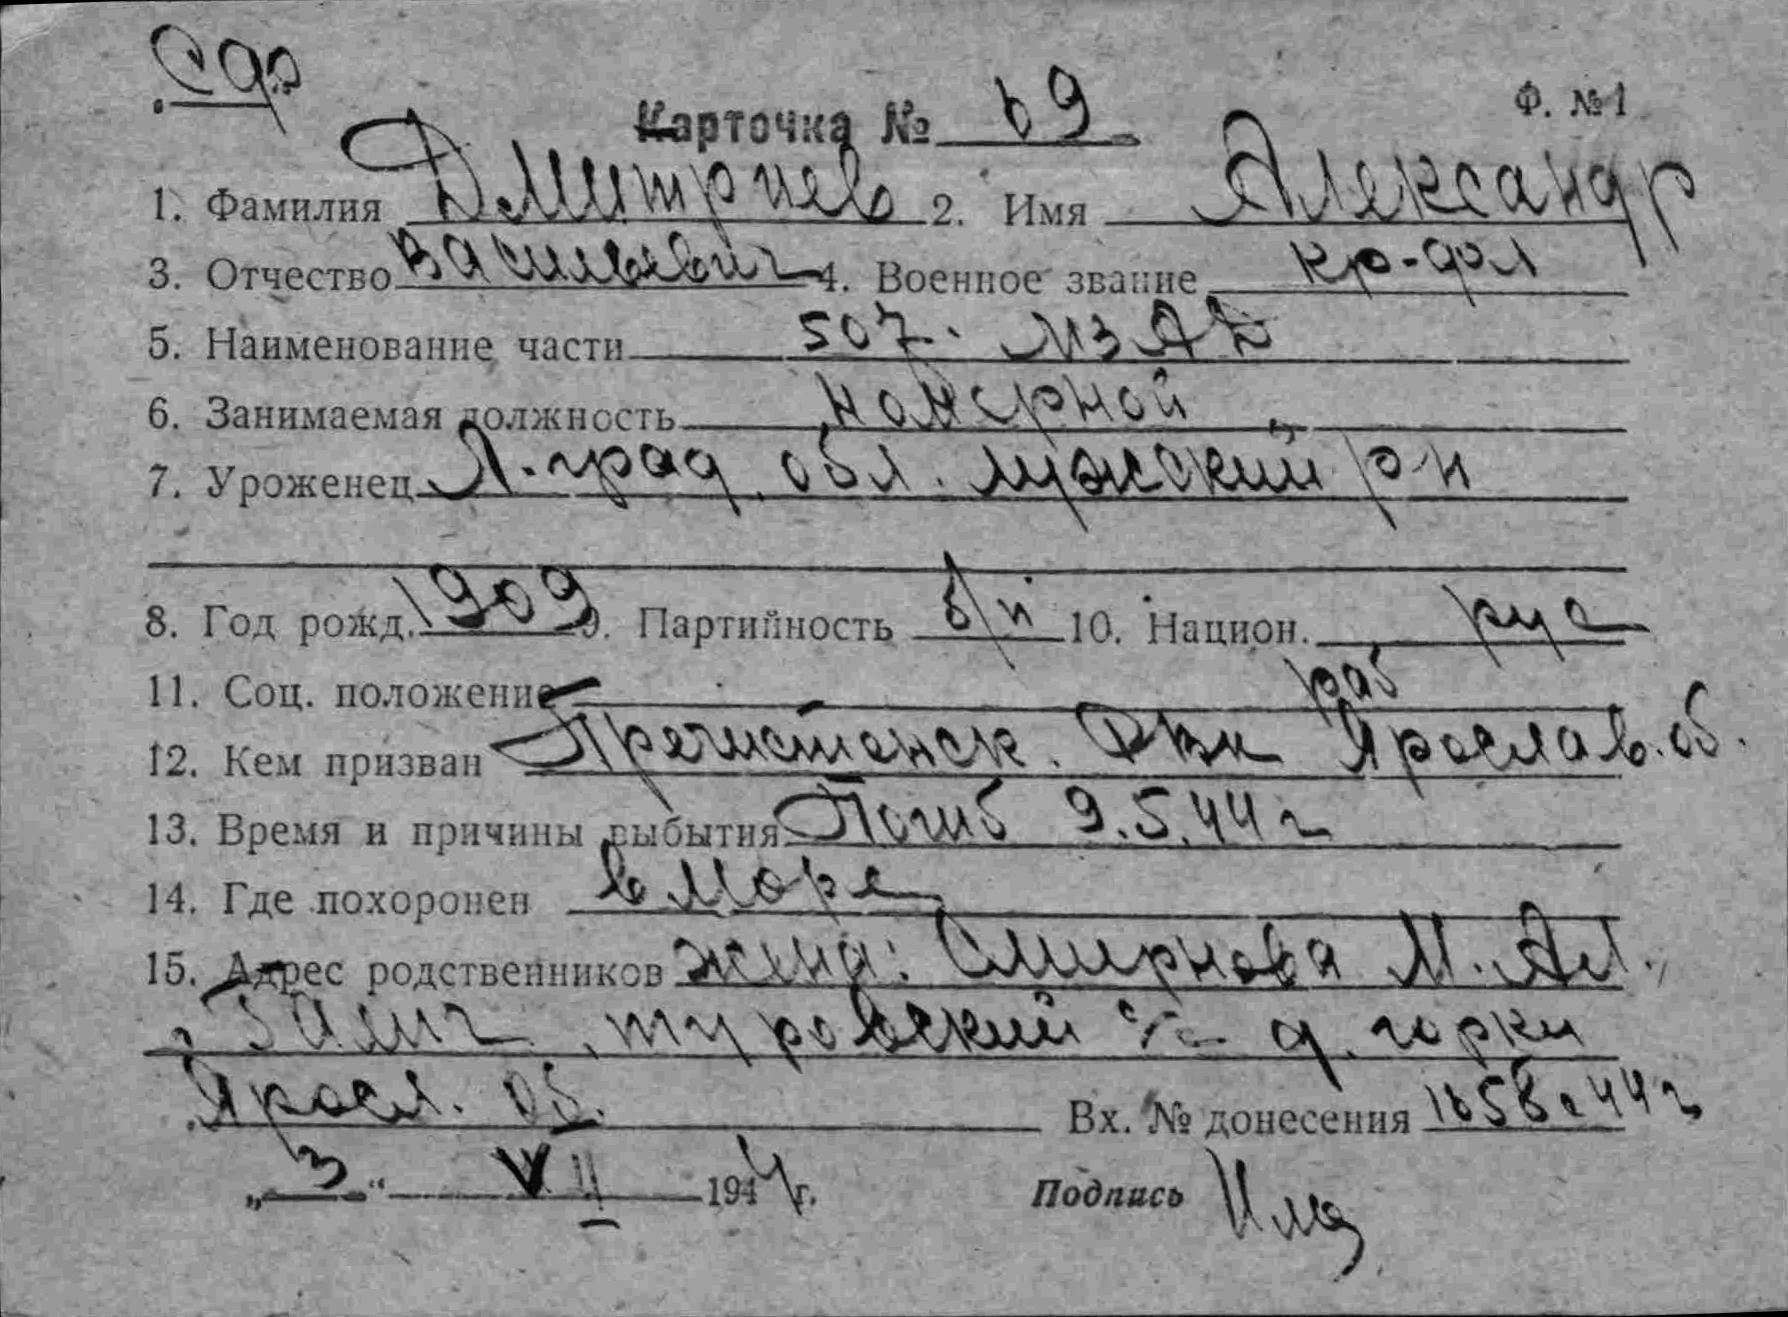 Карточка № 69 Ф. №1
1. Фамилия Дмитриев 2. Имя Александр
3. Отчество Васильевич 4. Военное звание кр-фл
5. Наименование части 507. МЗАД
6. Занимаемая должность номерной
7. Уроженец Л.град. обл. лужский р-н
8. Год рожд. 1909 9. Партийность б/п 10. Национ. рус
11. Соц. положение раб
12. Кем призван Пречистенск. РВК Ярослав. об.
13. Время и причины выбытия Погиб 9.5.44 г
14. Где похоронен в море
15. Адрес родственников жена: Смирнова М. Ал.,
Галич, туровский с/с д. горки
Яросл. об. Вх. № донесения 1658с 44 г
„3“ VII 1944 г. Подпись